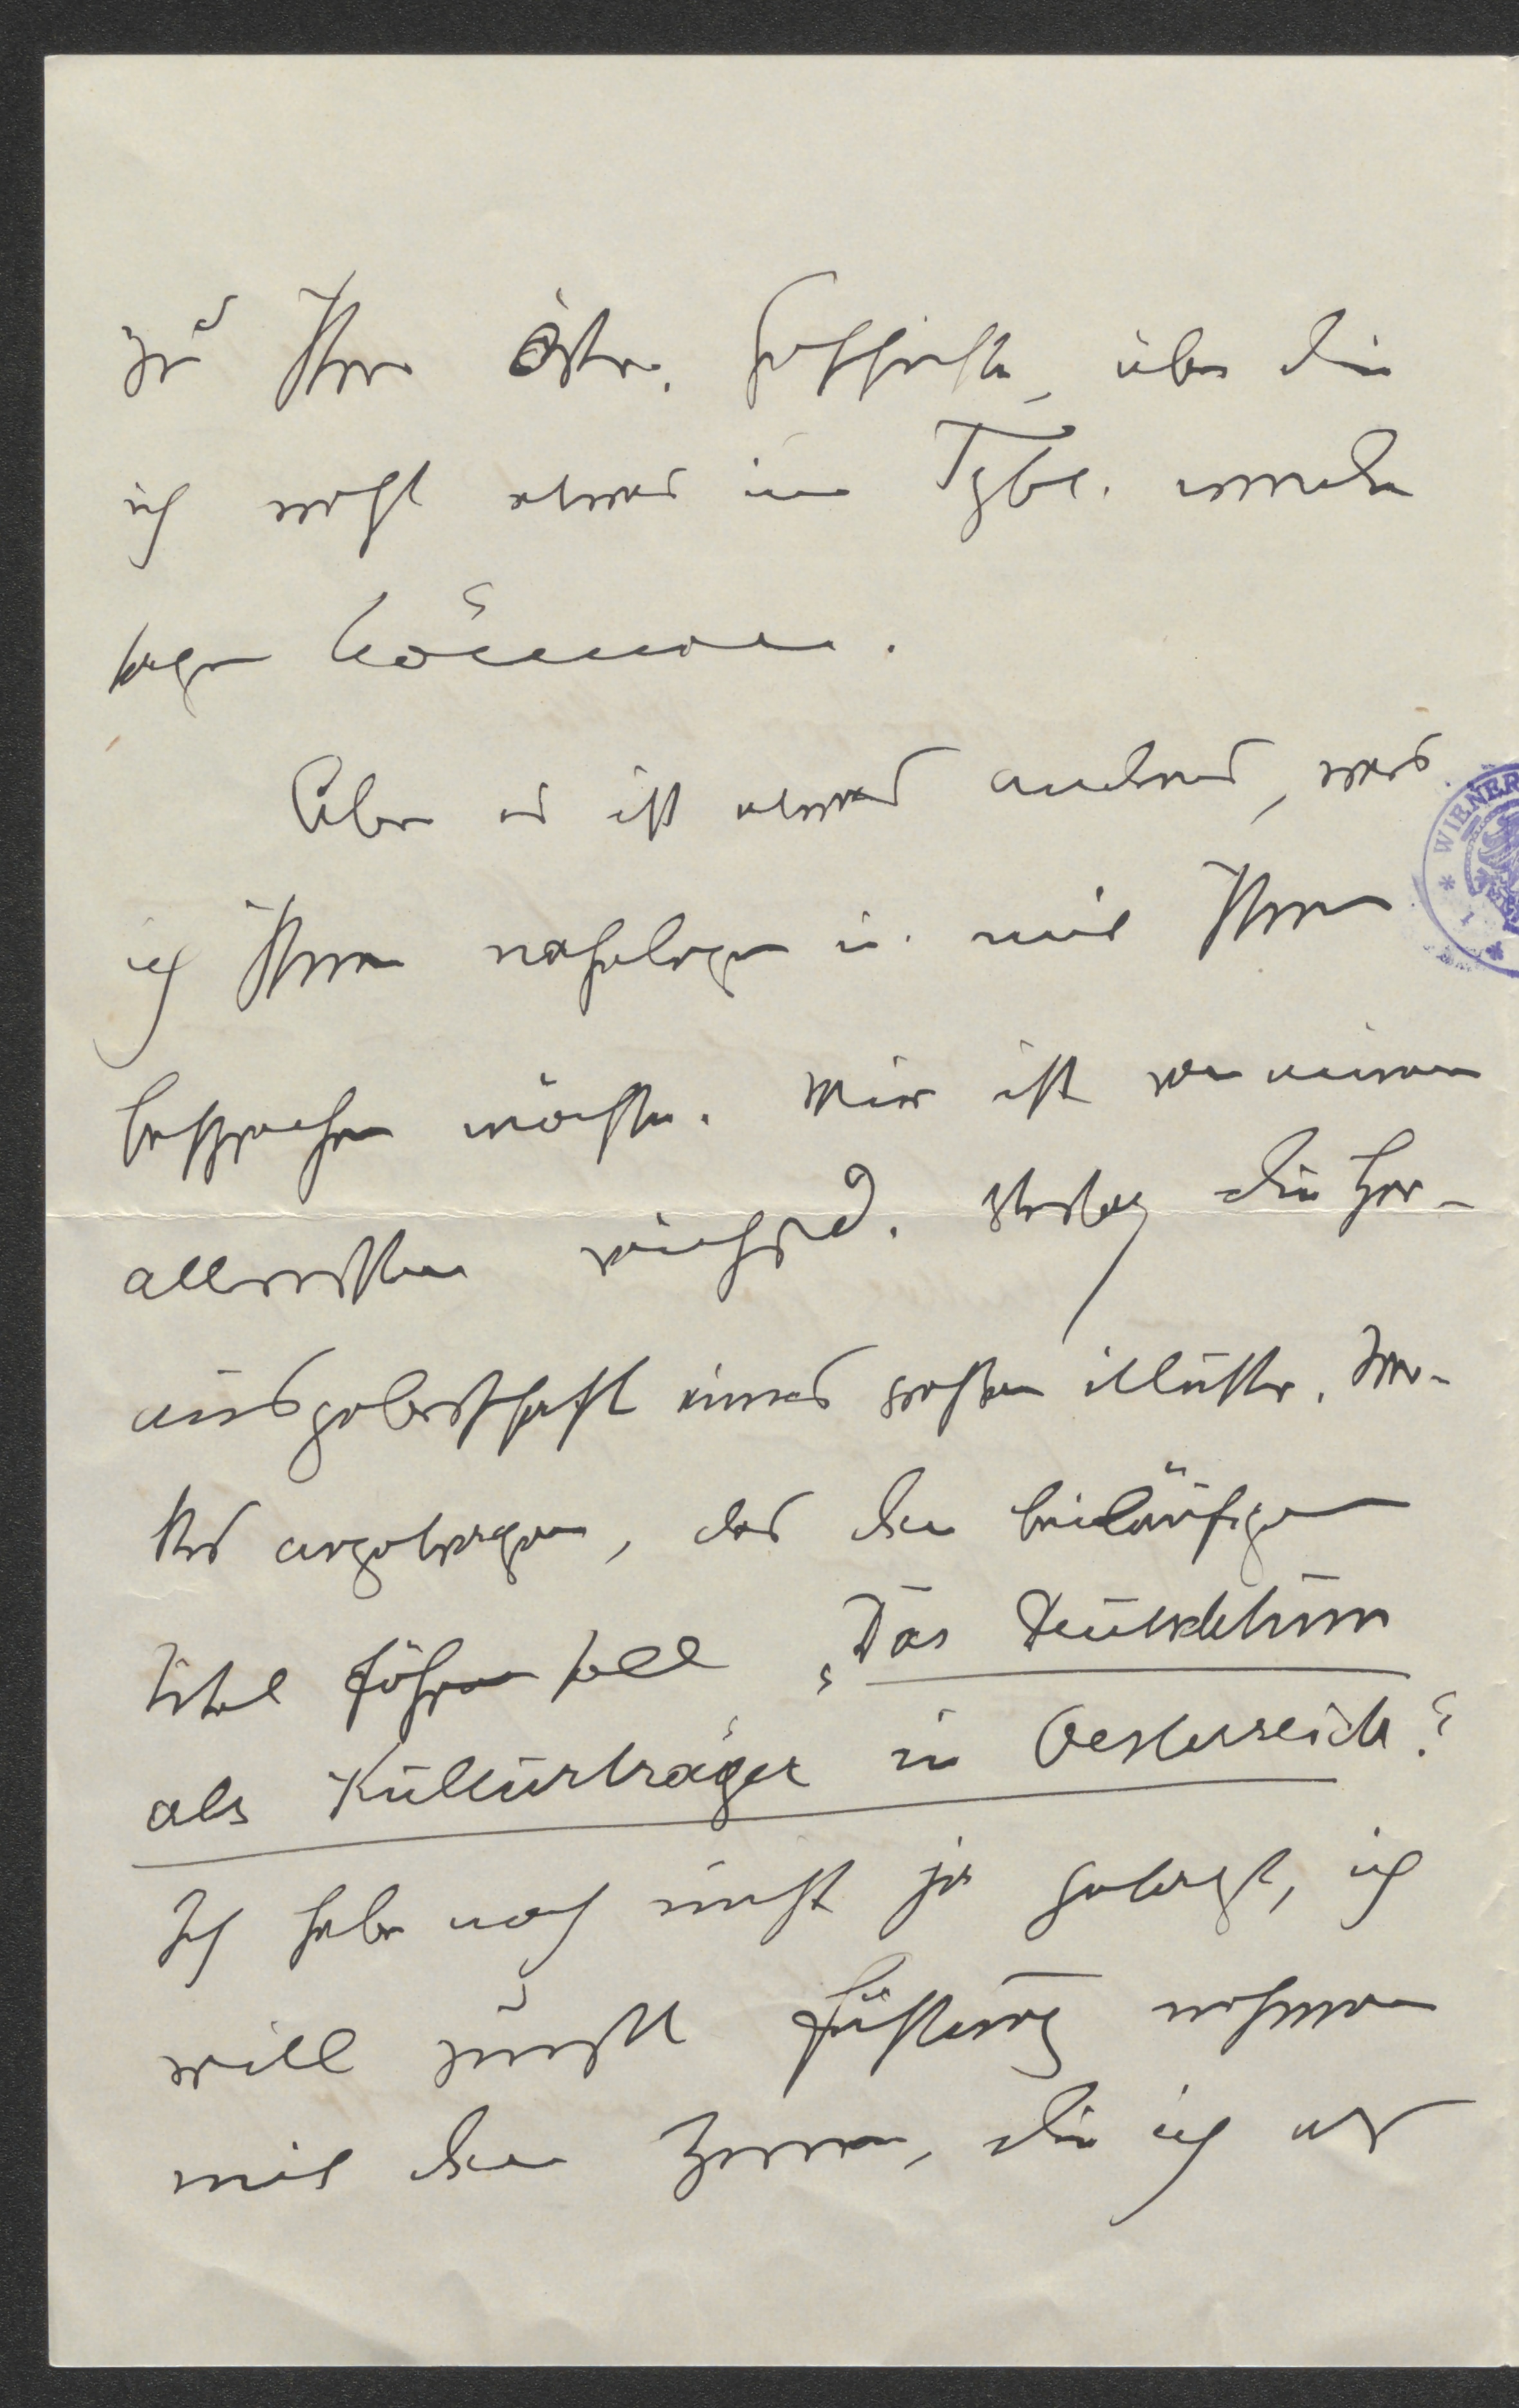 zu Ihrer Östr. Geschichte, über die
ich wohl etwas im Tgbl. werde
sagen können.
Aber es ist etwas anderes, was
ich Ihnen nahelegen u. mit Ihnen
besprechen möchte. Mir ist von einem
allerersten reichsd. Verlag die Her-
ausgeberschaft eines großen illustr. Wer-
kes angetragen, das den beiläufigen
Titel führen soll „Das Deutschtum
als Kulturträger in Oesterreich“.
Ich habe noch nicht ja gesagt, ich
will zuerst Fühlung nehmen
mit den Herren, die ich als
WIENER